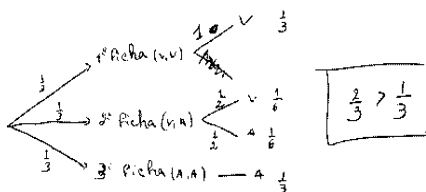 1 V 1/3
1/3 1ª ficha (V,V)
1/3 2ª ficha (V,A) 1/2 V 1/6
1/2 A 1/6
1/3 3ª ficha (A,A) — A 1/3
2/3 > 1/3